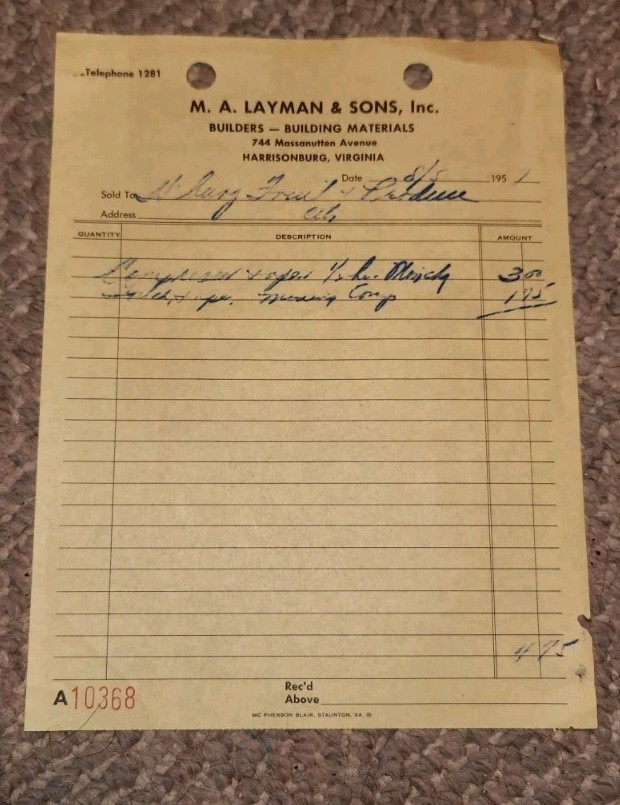 Telephone 1281
M. A. LAYMAN & SONS, Inc.
BUILDERS — BUILDING MATERIALS
744 Massanutten Avenue
HARRISONBURG, VIRGINIA
Date 8/5 1951
Sold To H'burg Fruit & Produce
Address City
QUANTITY DESCRIPTION AMOUNT
1/2 hr. 3 00
1 75
4 75
A10368
Rec'd
Above
MC PHERSON BLAIR, STAUNTON, VA.